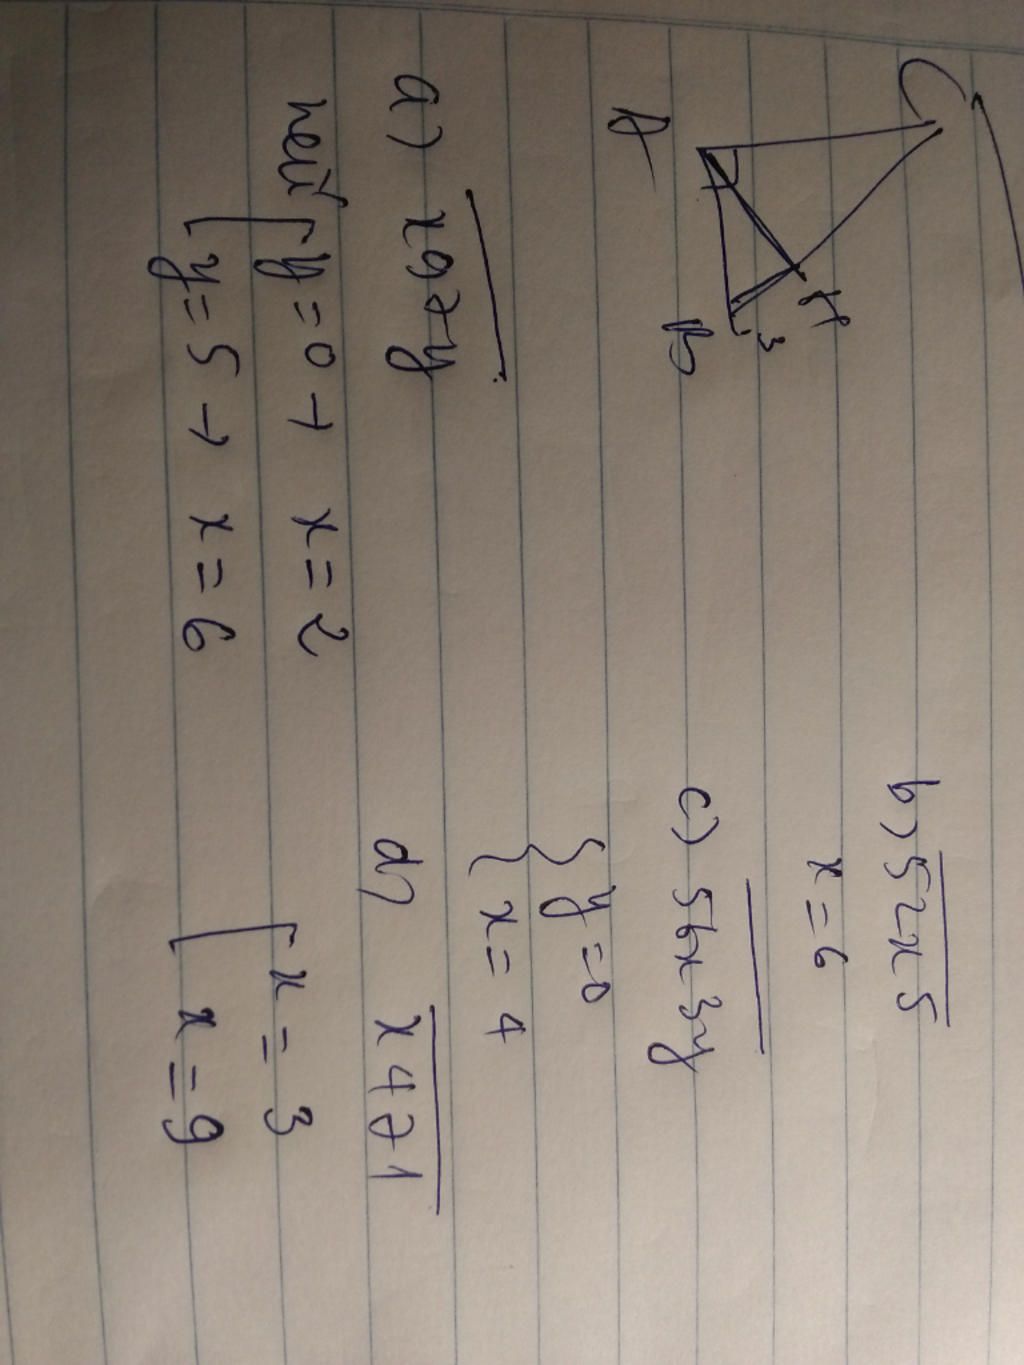 C
H
3
A
B
a) x97y
nếu y = 0 → x = 2
y = 5 → x = 6
b) 52x5
x = 6
c) 56x3y
y = 0
x = 4
d) x471
x = 3
x = 9